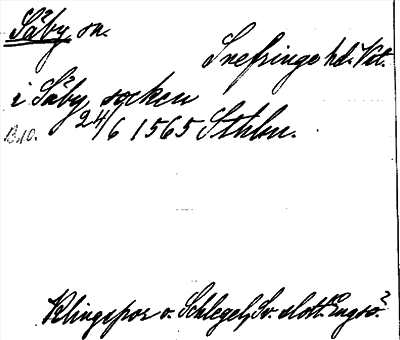 Säby sn.
Snefringe hd. Vstm.
i Säby socken
24/6 1565 Sthlm.
B.10.
Klingspor o. Schlegel, Sv. slott "Engsö"